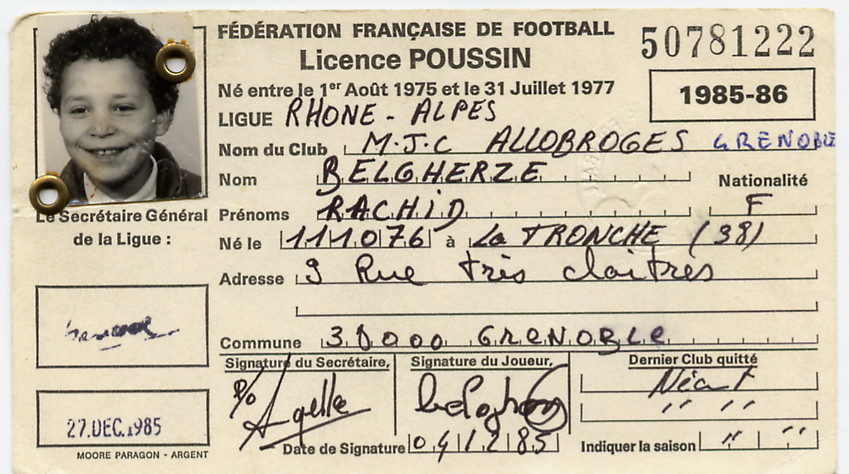 FÉDÉRATION FRANÇAISE DE FOOTBALL
50781222
Licence POUSSIN
Né entre le 1er Août 1975 et le 31 Juillet 1977
1985-86
LIGUE RHONE - ALPES
Nom du Club M.J.C ALLOBROGES GRENOBLE
Nom BELGHERZE
Nationalité
Prénoms RACHID F
Le Secrétaire Général
de la Ligue :
Né le 111076 à LA TRONCHE (38)
Adresse 9 Rue très cloîtres
Commune 38000 GRENOBLE
Signature du Secrétaire,
Signature du Joueur,
Dernier Club quitté
Néant
P/o
" "
27.DEC.1985
Date de Signature 041285
Indiquer la saison " "
MOORE PARAGON - ARGENT